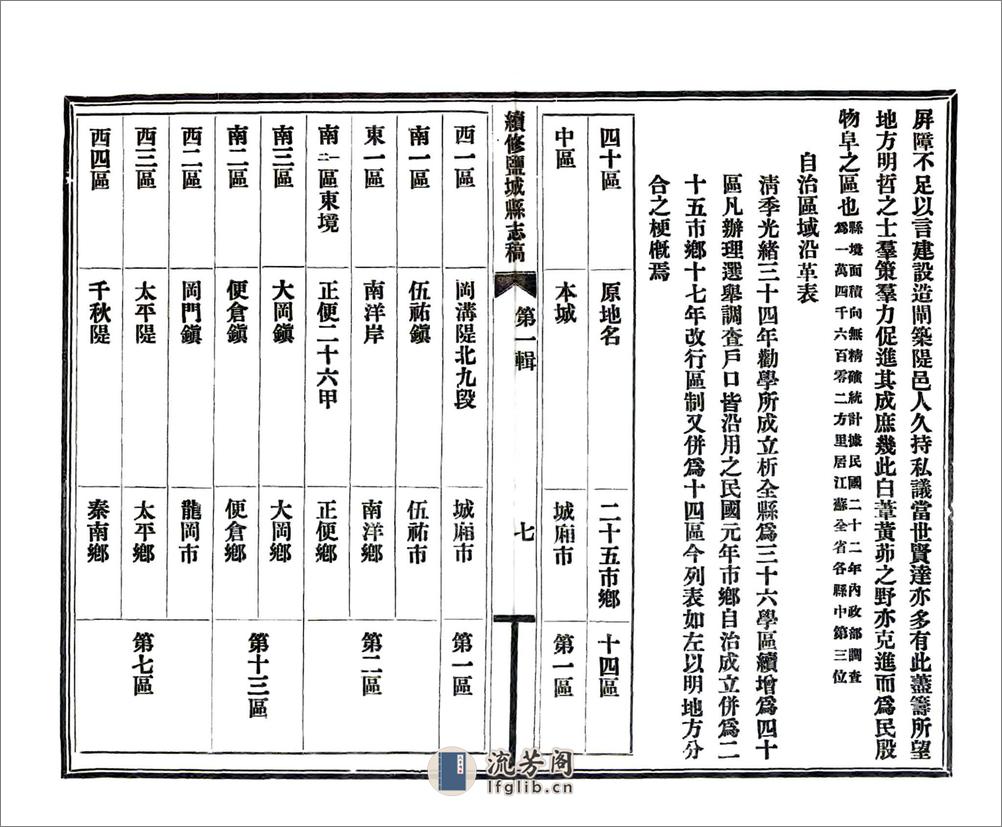 屏障不足以言建設造閘築隄邑人久持私議當世賢達亦多有此藎籌所望
地方明哲之士羣策羣力促進其成庶幾此白葦黃茆之野亦克進而爲民殷
物阜之區也縣境面積向無精確統計據民國二十二年內政部調查
爲一萬四千六百零二方里居江蘇全省各縣中第三位
自治區域沿革表
清季光緒三十四年勸學所成立析全縣爲三十六學區續增爲四十
區凡辦理選舉調查戶口皆沿用之民國元年市鄉自治成立併爲二
十五市鄉十七年改行區制又併爲十四區今列表如左以明地方分
合之梗概焉
四十區 原地名 二十五市鄉 十四區
中區 本城 城廂市 第一區
續修鹽城縣志稿 第一輯 七
西一區 岡溝隄北九段 城廂市 第一區
南一區 伍祐鎮 伍祐市
東一區 南洋岸 南洋鄉 第二區
南一二區東境 正便二十六甲 正便鄉
南三區 大岡鎮 大岡鄉 第十三區
南二區 便倉鎮 便倉鄉
西二區 岡門鎮 龍岡市
西三區 太平隄 太平鄉 第七區
西四區 千秋隄 秦南鄉
流芳阁
lfglib.cn